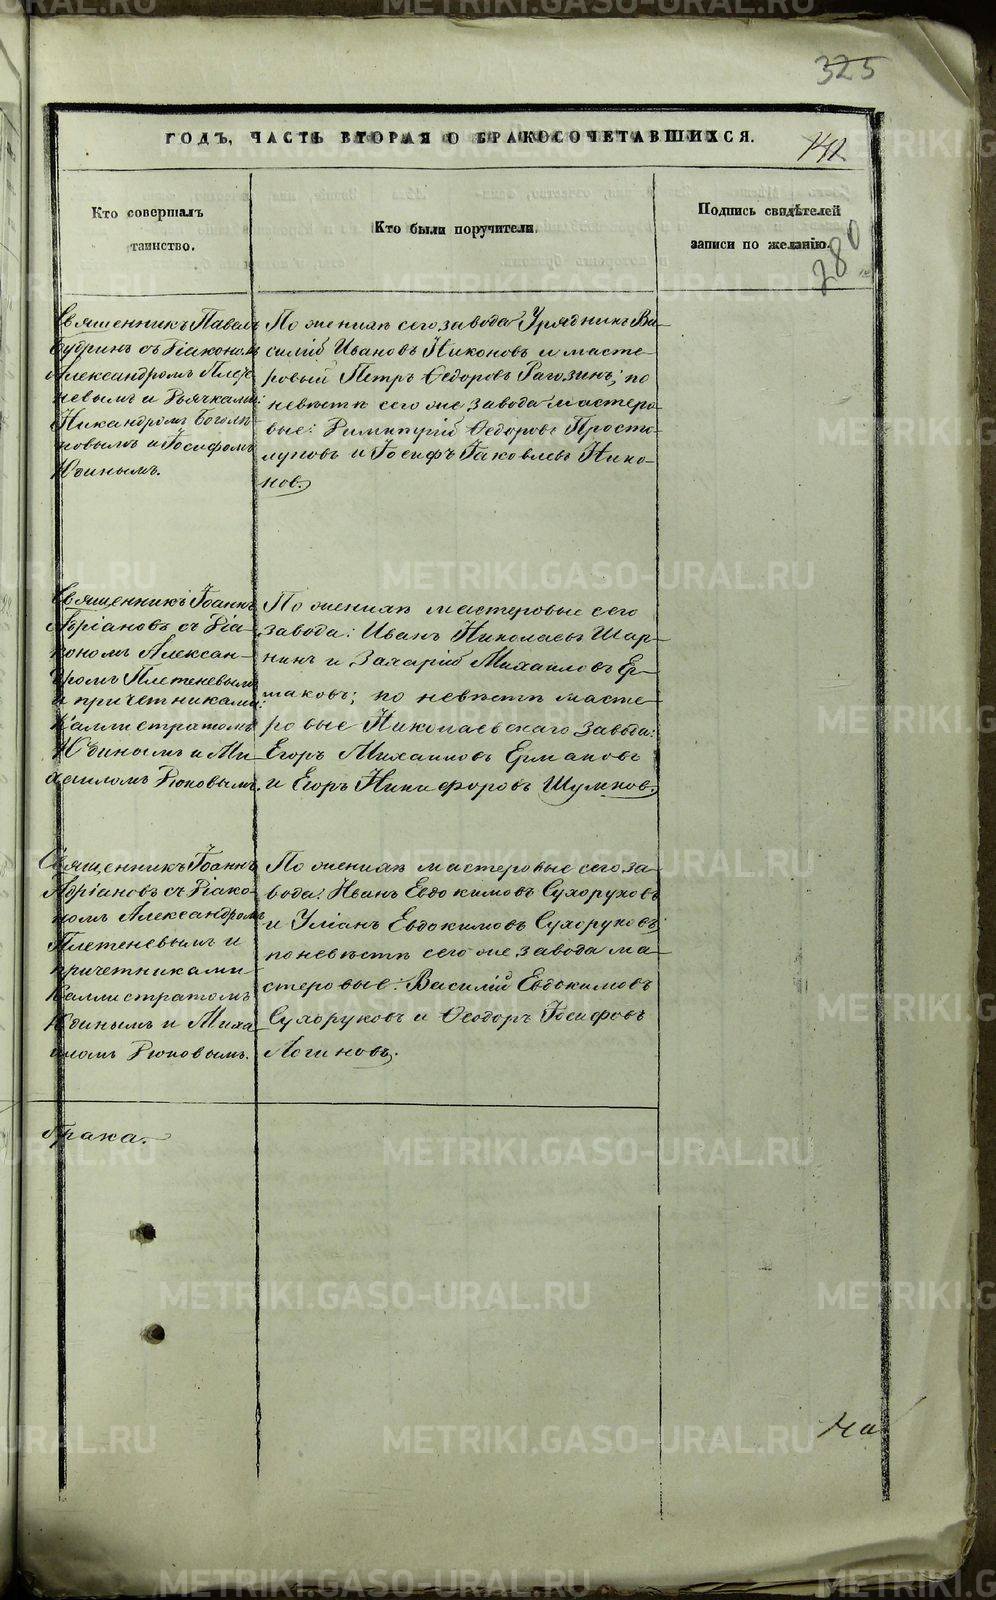 325
ГОДЪ, ЧАСТЬ ВТОРАЯ О БРАКОСОЧЕТАВШИХСЯ.
142
Кто совершалъ
таинство.
Кто были поручители.
Подпись свидѣтелей
записи по желанію.
280
Священникъ Павелъ
Будринъ съ Діакономъ
Александромъ Плете
невымъ и Дьячками:
Никандромъ
новымъ и Іосифомъ
Юдинымъ.
По женихѣ сего завода Урядникъ Ва-
силій Ивановъ Никоновъ и масте-
ровый Петръ Ѳедоровъ Рагозинъ; по
невѣстѣ сего же завода мастеро-
вые: Димитрій Ѳедоровъ Просто-
луповъ и Іосифъ Іаковлевъ Нико-
новъ.
Священникъ Іоаннъ
Адріановъ съ Діа-
кономъ Алексан-
дромъ Плетеневымъ
и причетниками:
Каллистратомъ
Юдинымъ и Ми-
хаиломъ Дюковымъ.
По женихѣ мастеровые сего
завода: Иванъ Николаевъ Шар-
нинъ и Захарій Михаиловъ Ер-
маковъ; по невѣстѣ масте-
ровые Николаевскаго завода:
Егоръ Михаиловъ Ермаковъ
и Егоръ Никифоровъ Шумковъ.
Священникъ Іоаннъ
Адріановъ съ Діако-
номъ Александромъ
Плетеневымъ и
причетниками
Каллистратомъ
Юдинымъ и Миха
иломъ Дюковымъ.
По женихѣ мастеровые сего за-
вода: Иванъ Евдокимовъ Сухоруковъ
и Уліанъ Евдокимовъ Сухоруковъ;
по невѣстѣ сего же завода ма-
стеровые: Василій Евдокимовъ
Сухоруковъ и Ѳеодоръ Іосифовъ
Логиновъ.
брака.
На
METRIKI.GASO-URAL.RU